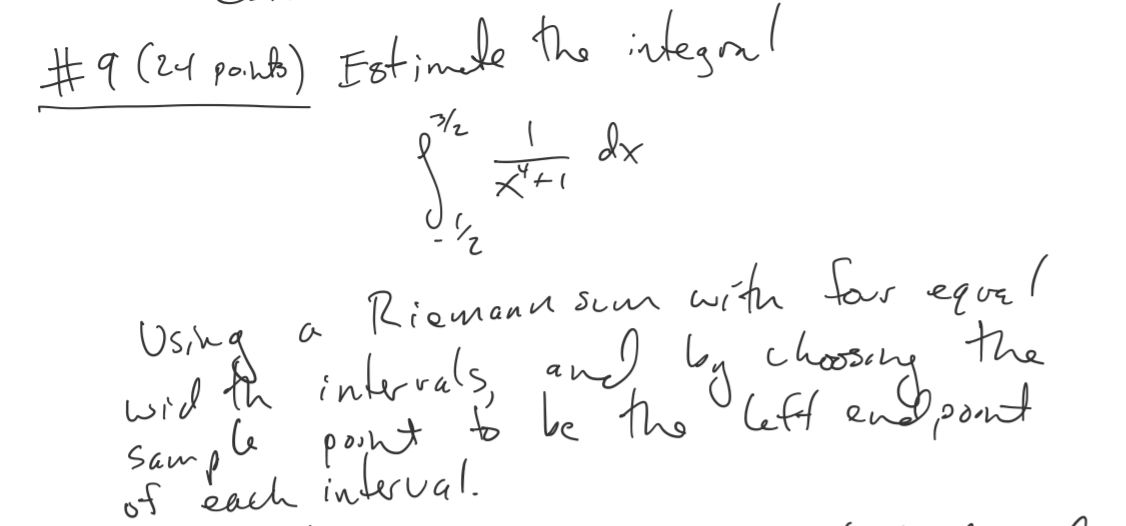 #9 (24 points) Estimate the integral
∫_{-1/2}^{3/2} 1/(x^4+1) dx
Using a Riemann sum with four equal
width intervals, and by choosing the
sample point to be the left endpoint
of each interval.